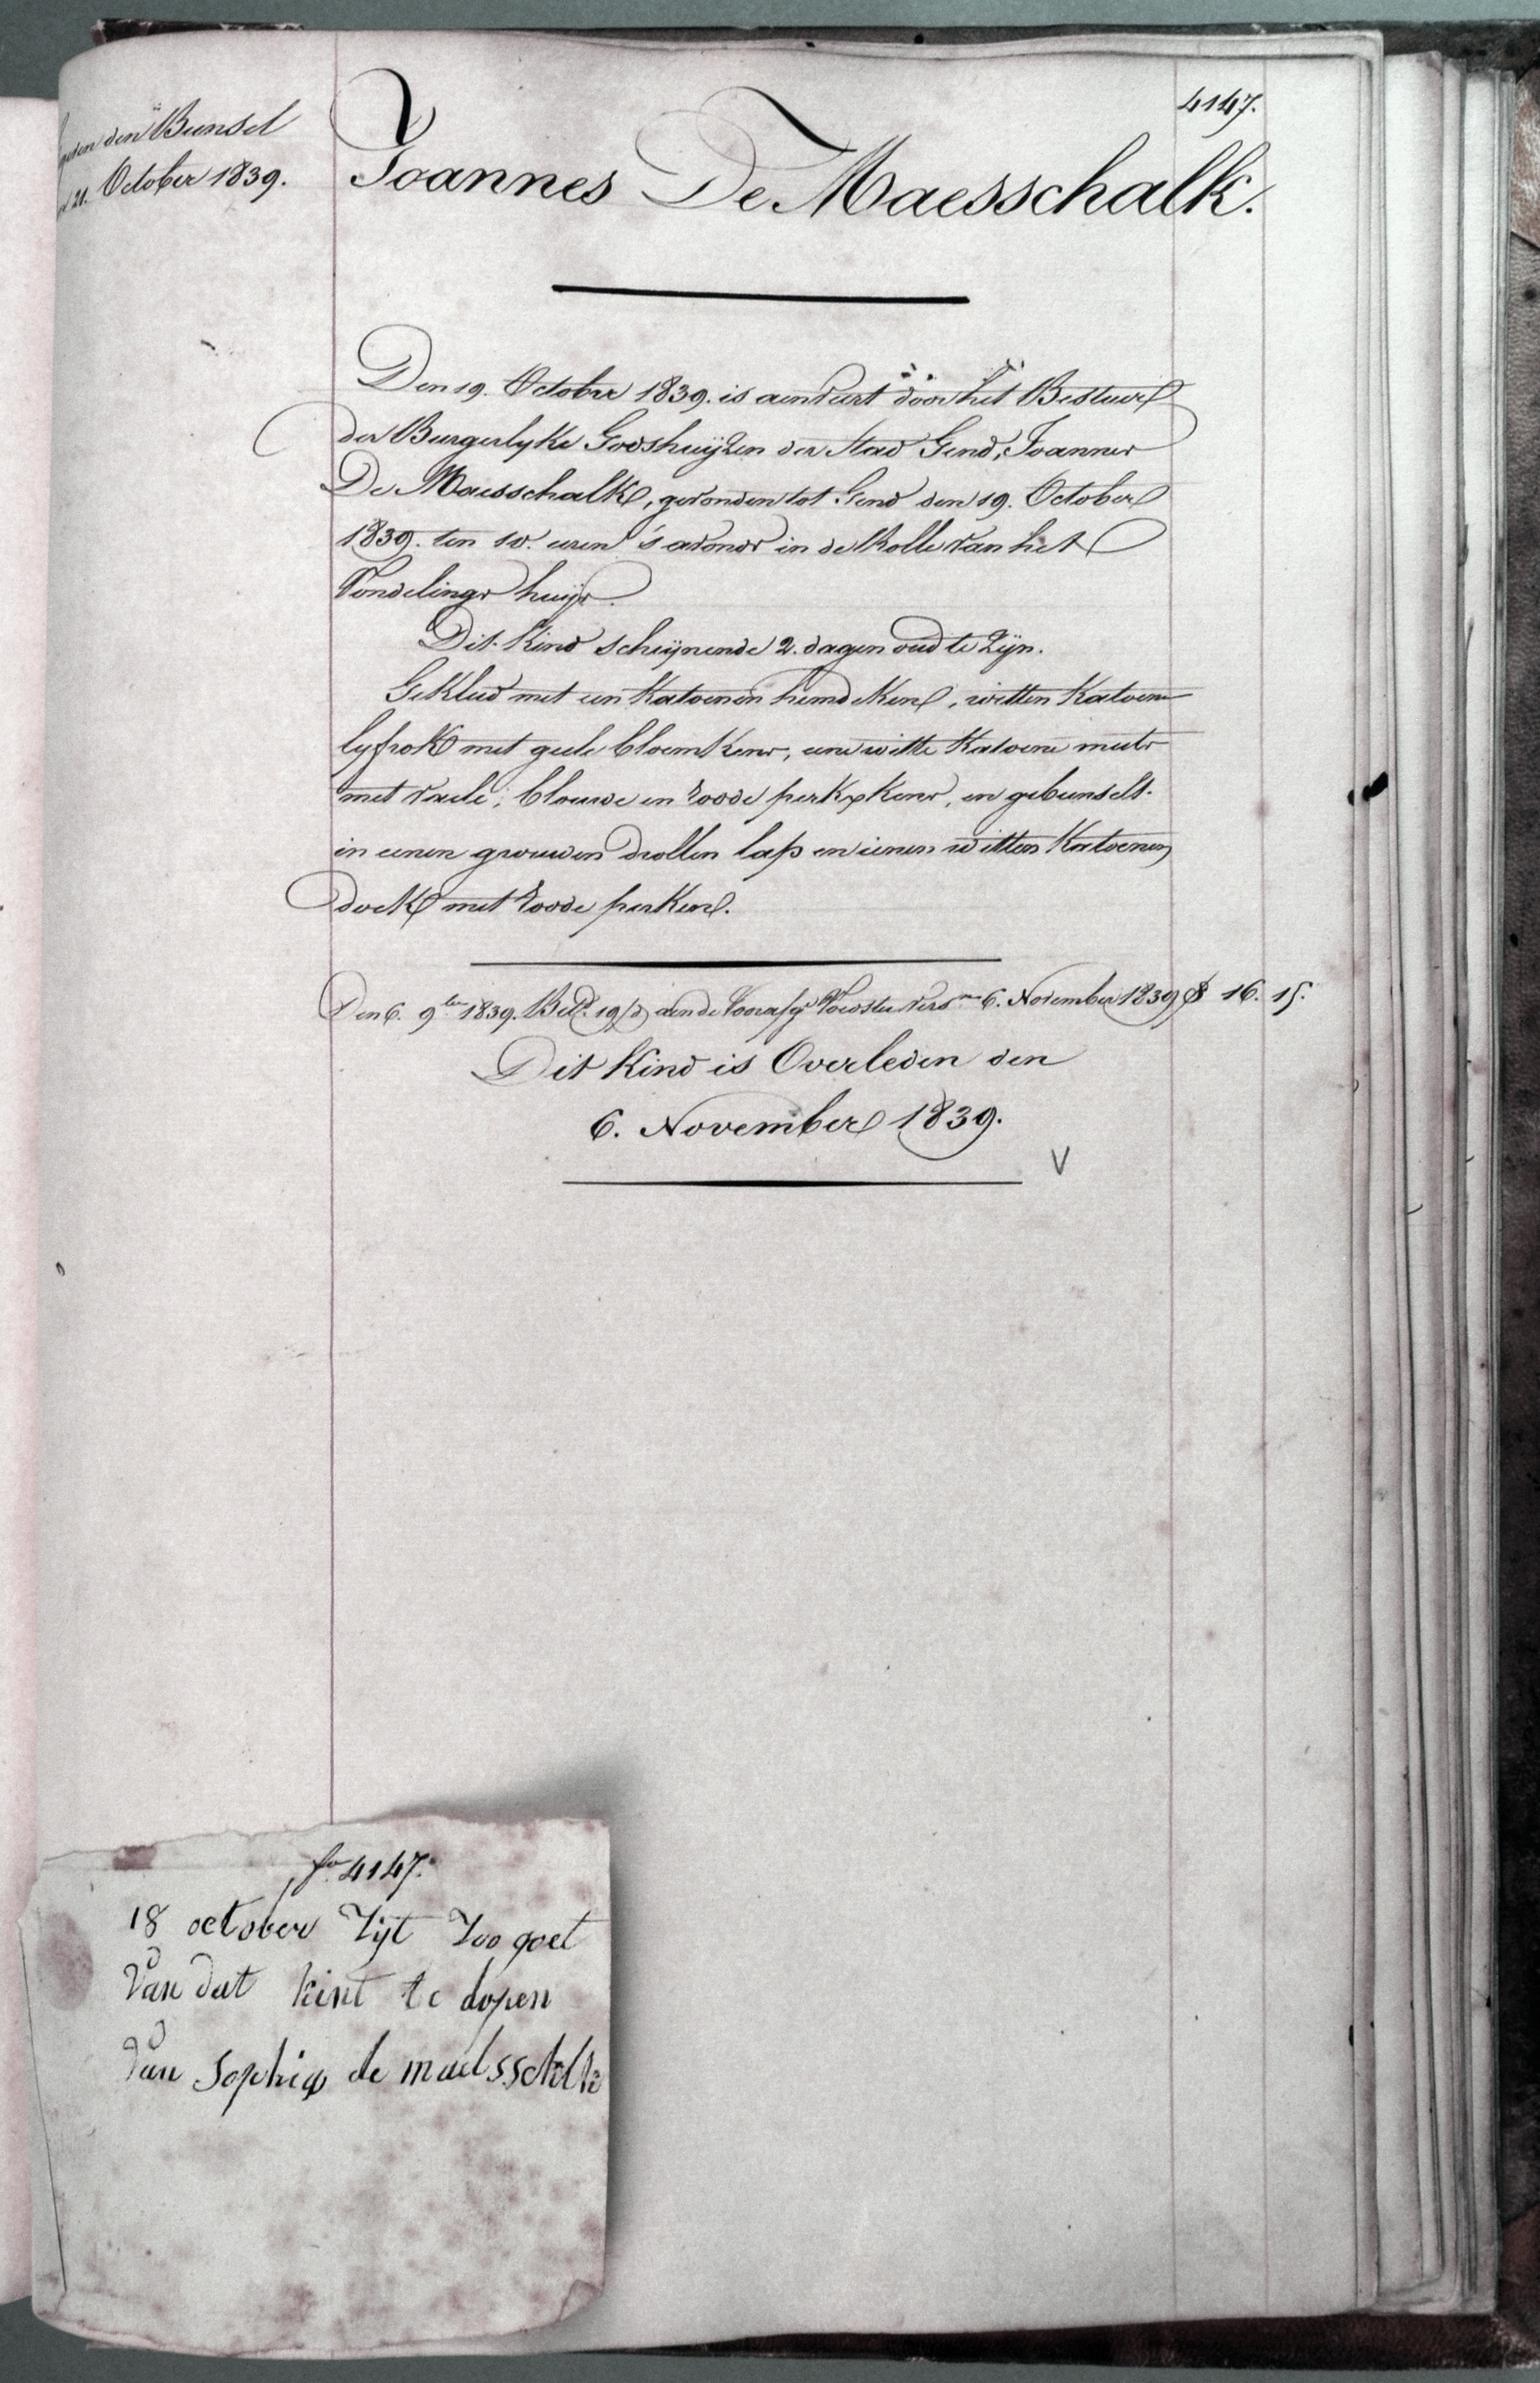 4147.
den Bunsel
21. October 1839.
Joannes De Maesschalk.
Den 19. October 1839. is aenveert door het Bestuur
der Burgerlyke Godshuyzen der Stad Gend, Joannes
De Maesschalk, gevonden tot Gend den 19. October
1839. ten 10. uren 's avonds in de Rolle van het
Vondelings huys.
Dit kind scheynende 2. dagen oud te zyn.
Gekleed met een katoenen hemdeken, witten katoene
lyfrok met geele bloemkens, eene witte katoene muts
met vaele, blauwe en roode perkxkens, en gebunselt
in eenen grouwen drollen lap en eenen witten katoenen
doek met roode perken.
Den 6. 9ber 1839. Betd. 19/d aen de Voorsg. Voedster vers 6. November 1839 16. 15.
Dit Kind is Overleden den
6. November 1839.
V
fo. 4147.
18 october Zijt Zoo goet
van dat kint te dopen
van Sophia de maesschalk